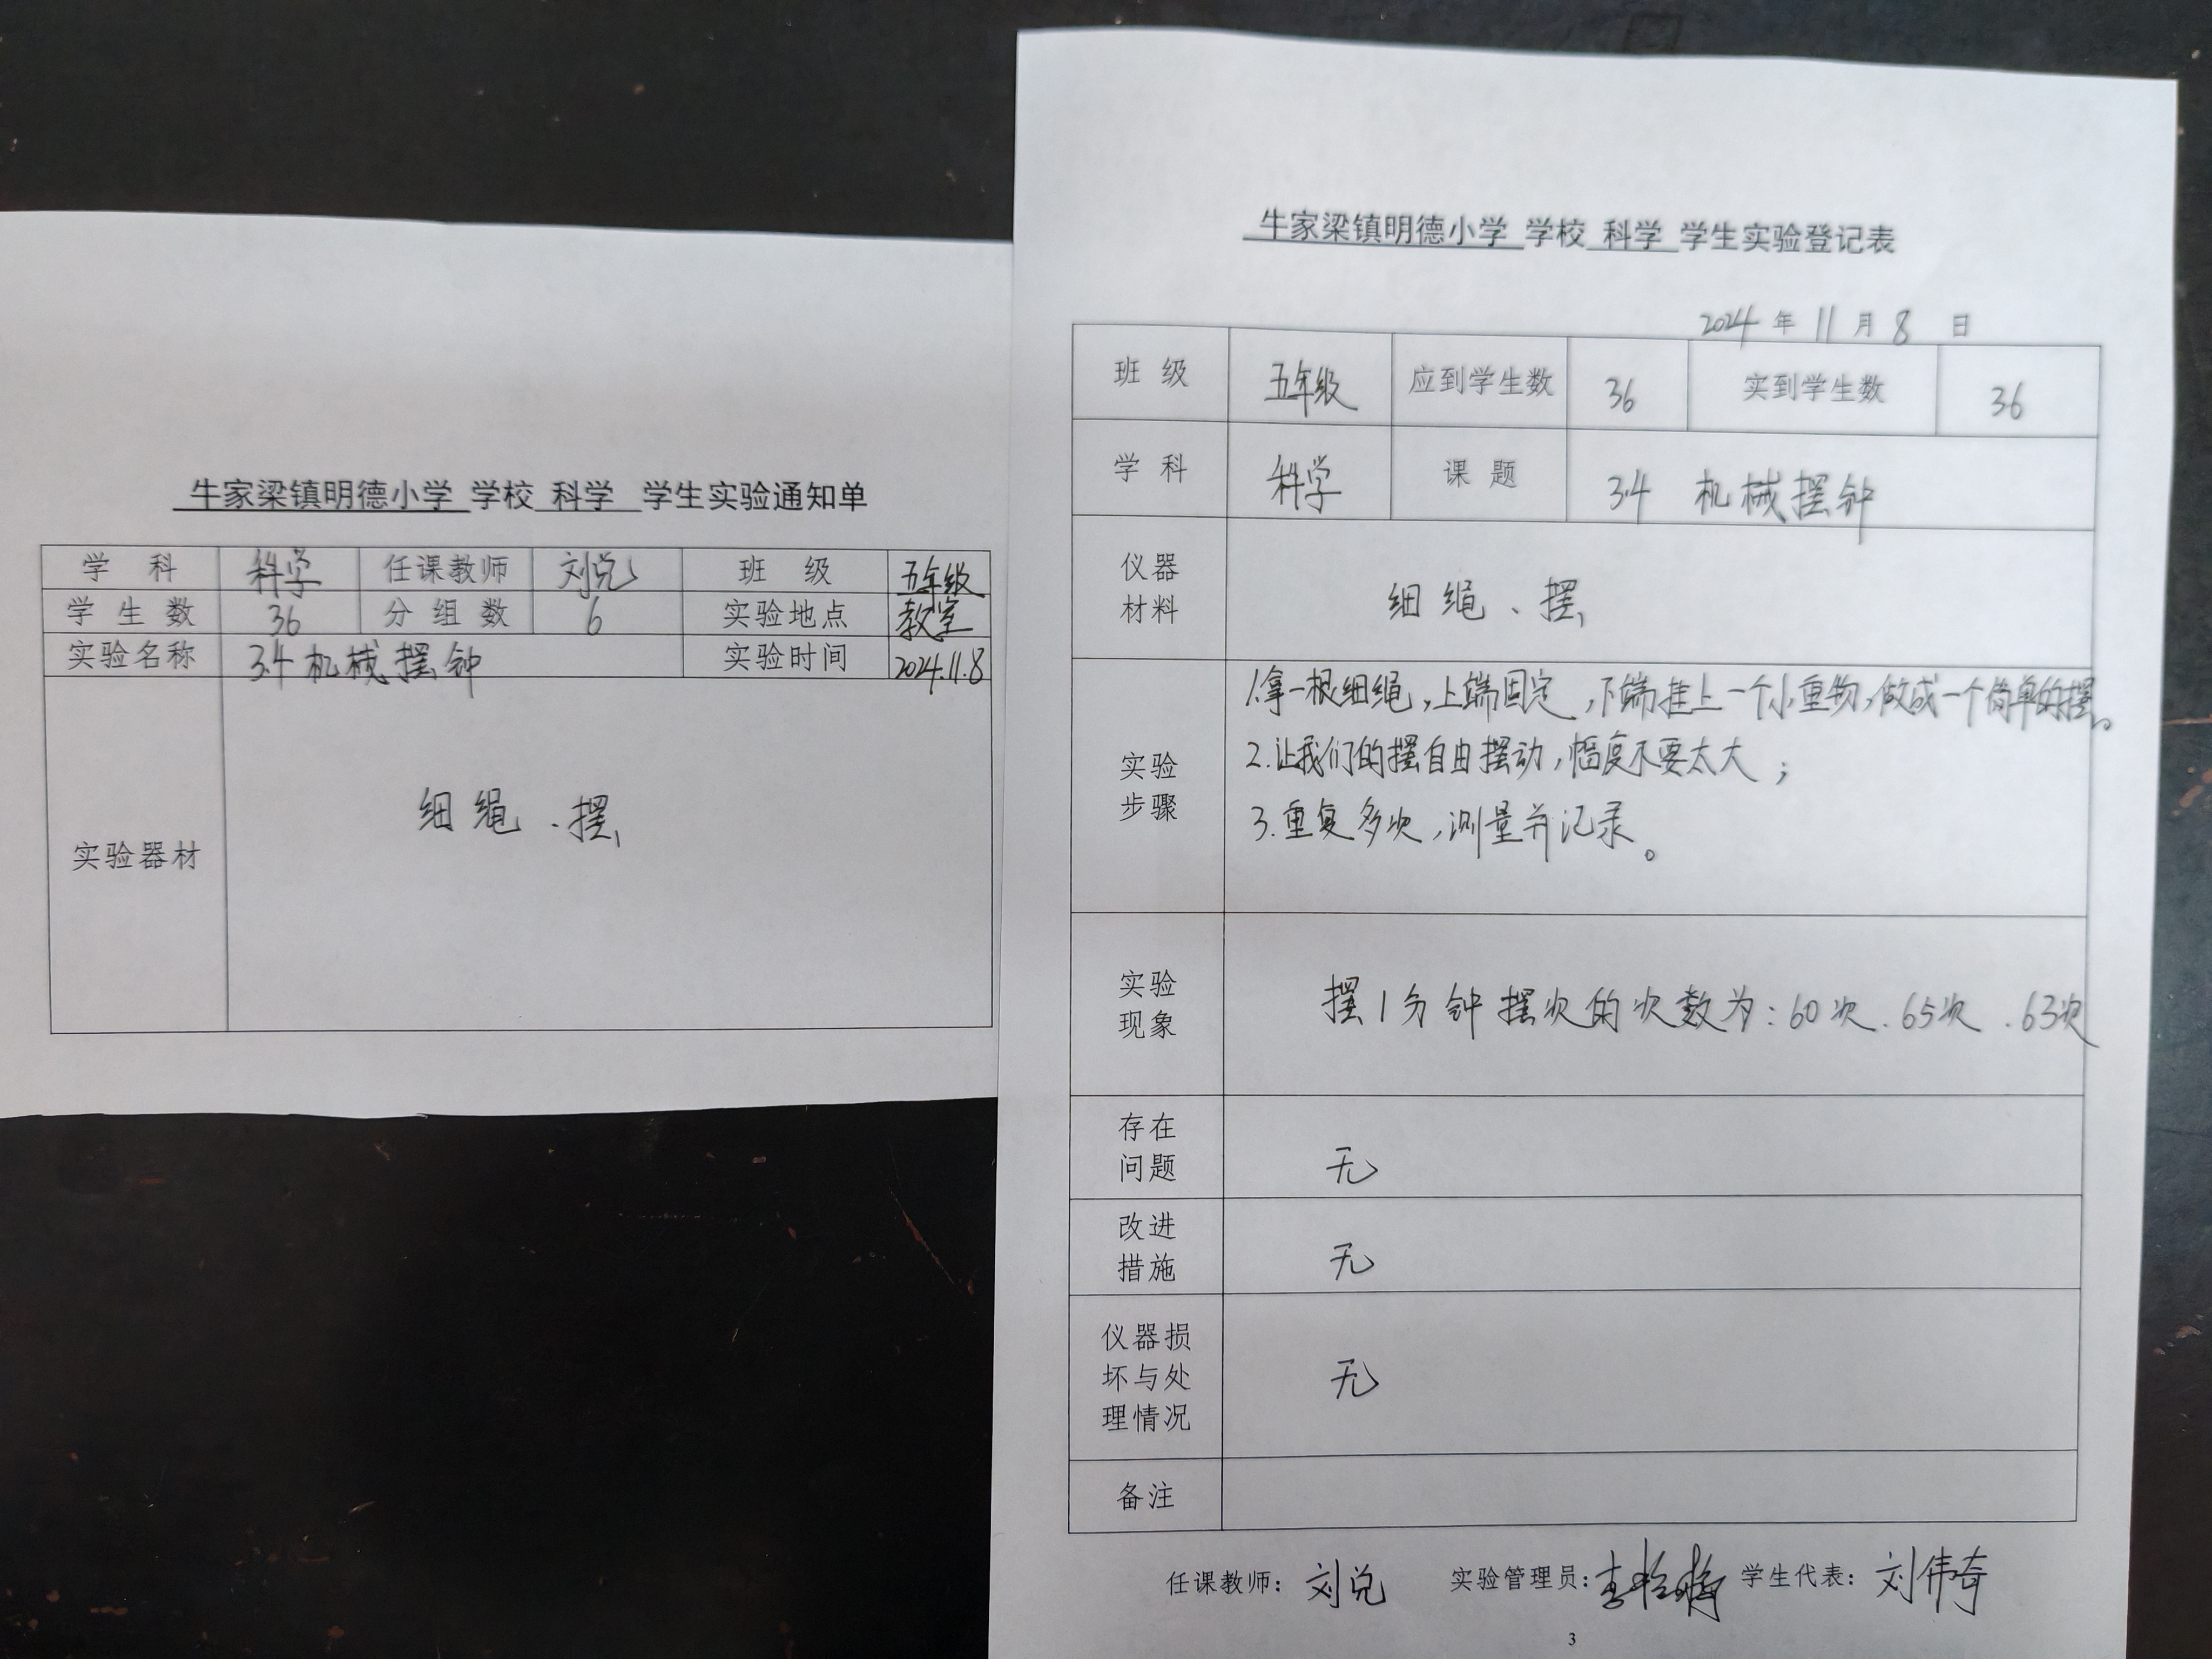 牛家梁镇明德小学 学校 科学 学生实验通知单
学 科 科学 任课教师 刘兑 班 级 五年级
学 生 数 36 分 组 数 6 实验地点 教室
实验名称 3.4 机械摆钟 实验时间 2024.11.8
实验器材 细绳、摆
牛家梁镇明德小学 学校 科学 学生实验登记表
2024 年 11 月 8 日
班 级 五年级 应到学生数 36 实到学生数 36
学 科 科学 课 题 3.4 机械摆钟
仪器
材料
细绳、摆
实验
步骤
1.拿一根细绳,上端固定,下端挂上一个小重物,做成一个简单的摆。
2.让我们的摆自由摆动,幅度不要太大;
3.重复多次,测量并记录。
实验
现象
摆1分钟摆次的次数为:60次、65次、63次
存在
问题
无
改进
措施
无
仪器损
坏与处
理情况
无
备注
任课教师: 刘兑 实验管理员: 学生代表: 刘伟奇
3